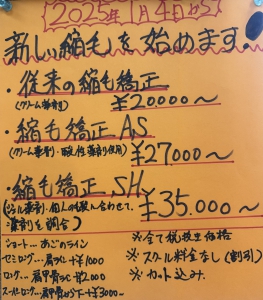 2025年1月4日から
新しい縮毛を始めます!
・従来の縮毛矯正
(クリーム薬剤)
¥20000〜
・縮毛矯正AS
(クリーム薬剤・酸性薬剤使用)
¥27000〜
・縮毛矯正SH
(ジェル薬剤・個人の毛髪に合わせて、
薬剤を調合)
¥35.000〜
ショート…あごのライン
セミロング…肩ラに+¥1000
ロング…肩甲骨に+¥2000
スーパーロング…肩甲骨から下+¥3000〜
※全て税抜き価格
※スクール料金なし(割引)
※カット込み